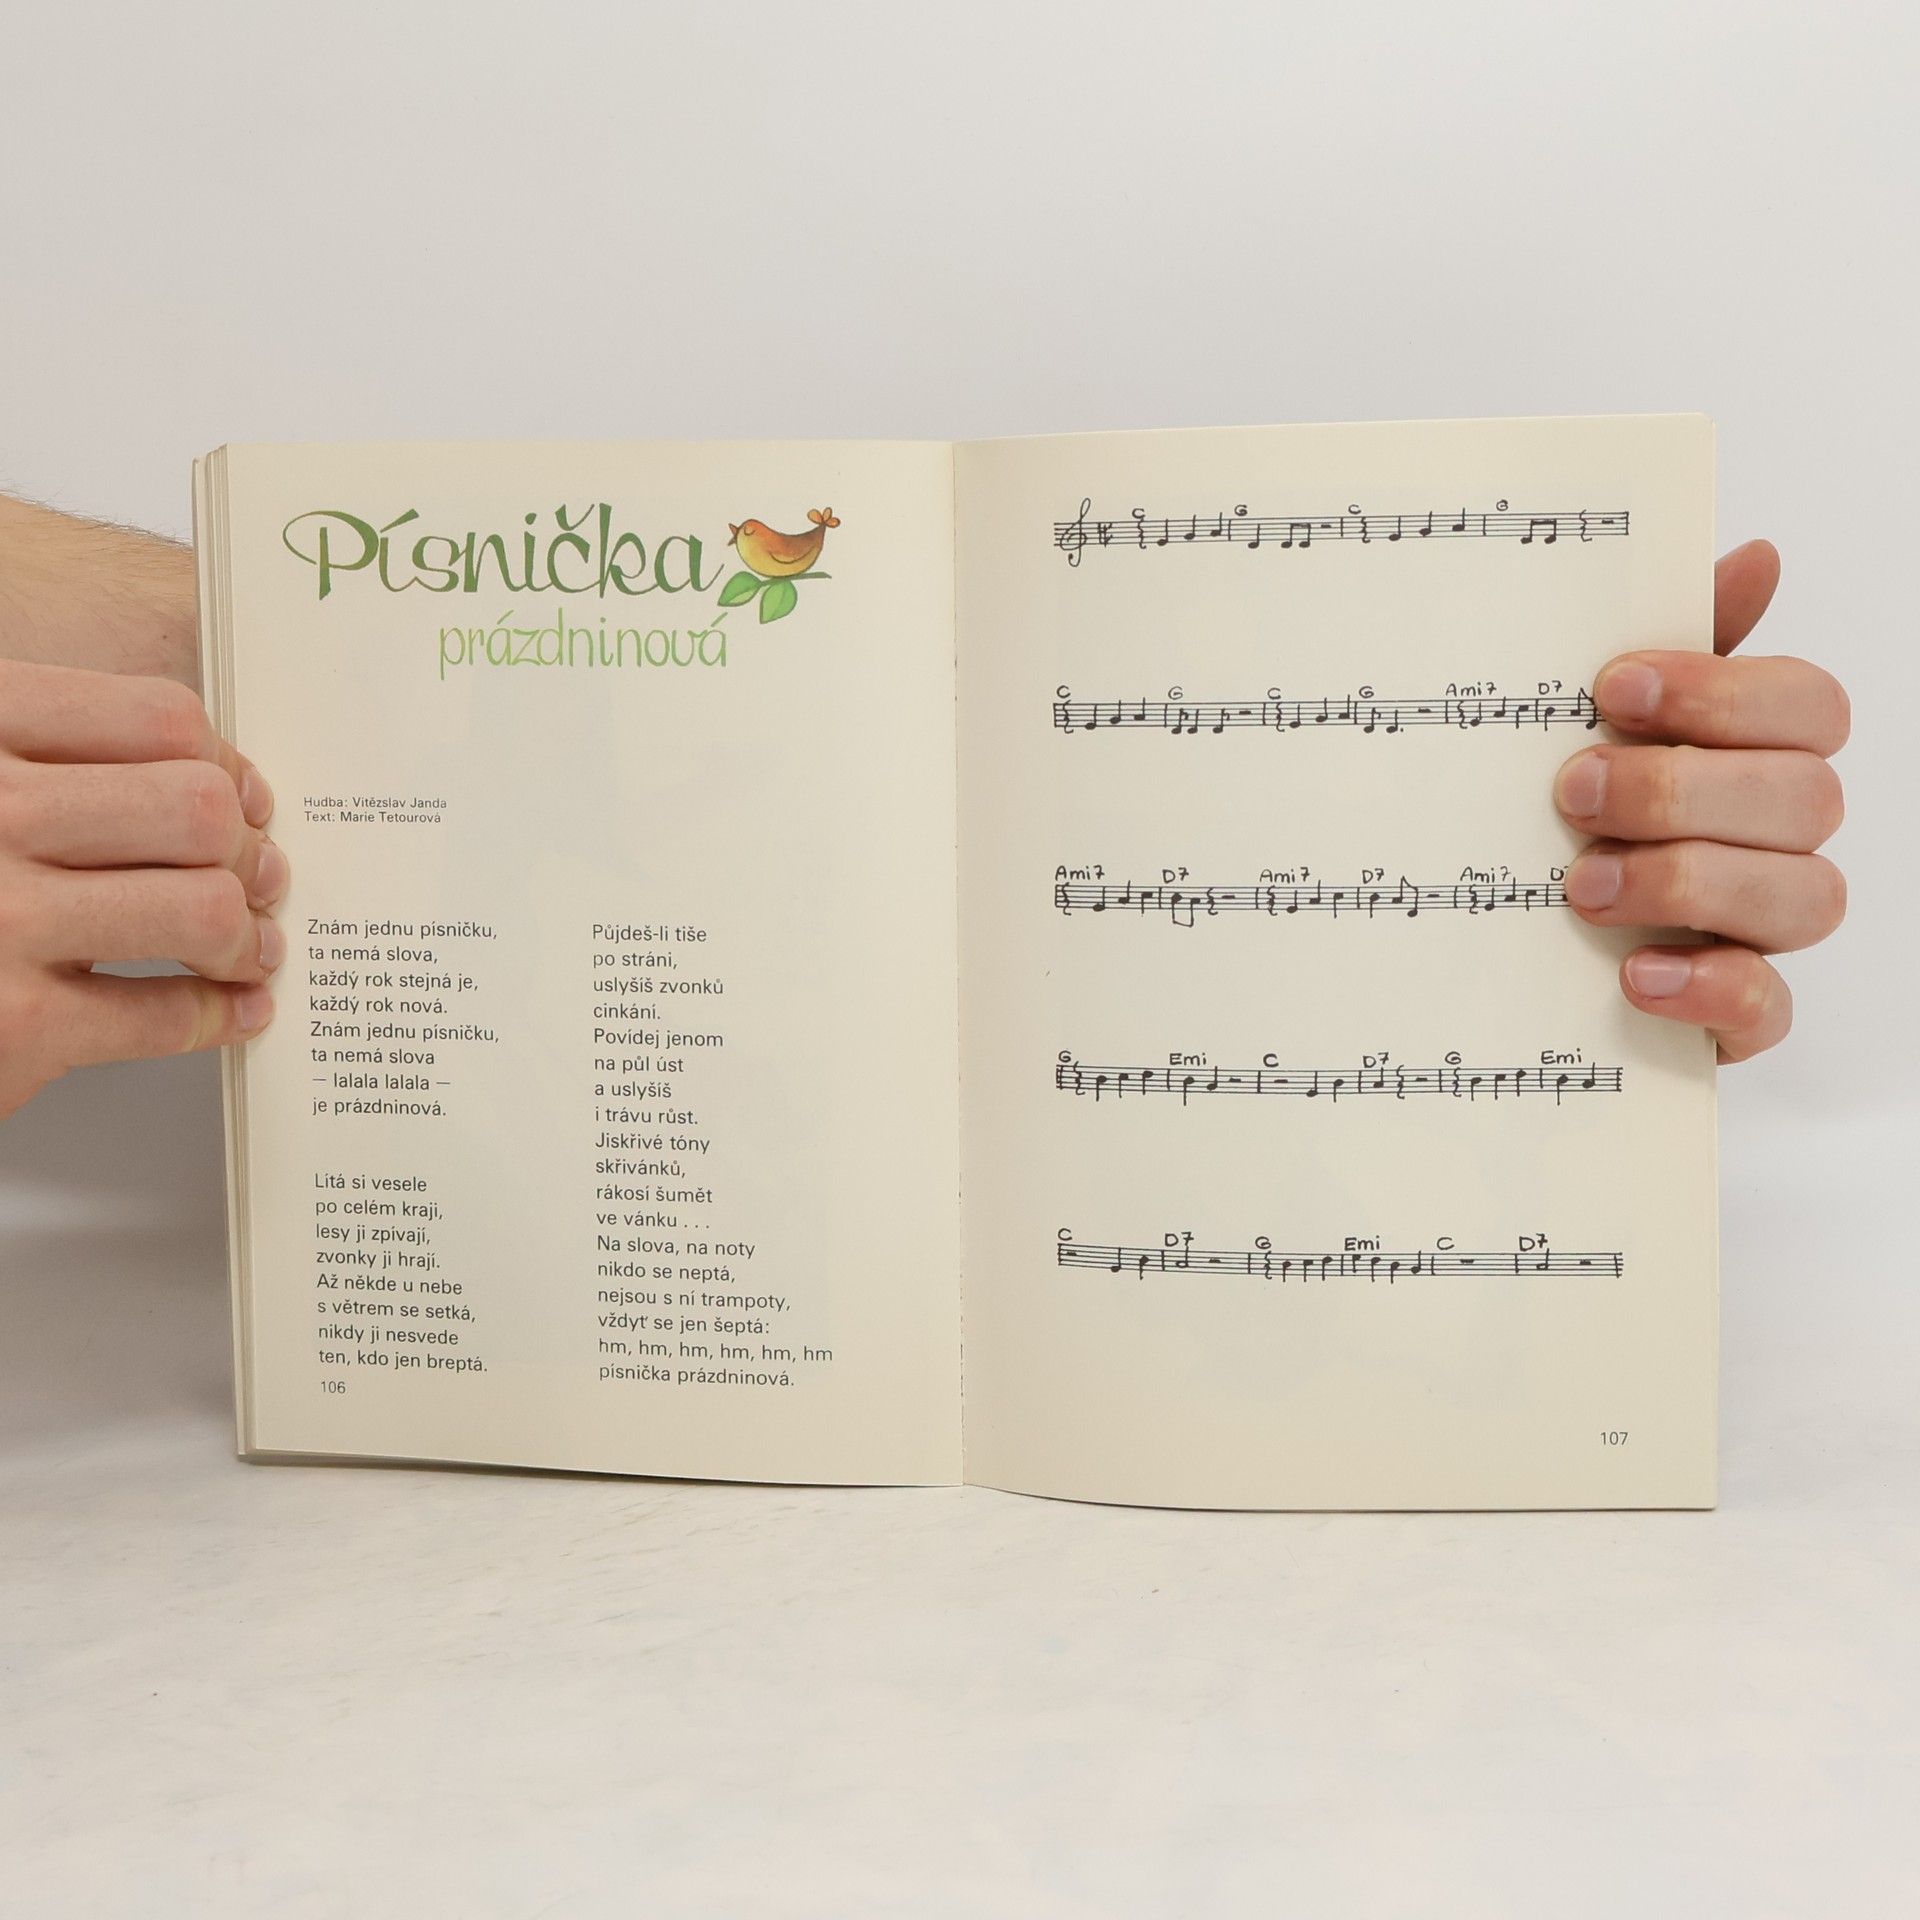 Písnička
prázdninová
Hudba: Vitězslav Janda
Text: Marie Tetourová
Znám jednu písničku,
ta nemá slova,
každý rok stejná je,
každý rok nová.
Znám jednu písničku,
ta nemá slova
— lalala lalala —
je prázdninová.
Lítá si vesele
po celém kraji,
lesy ji zpívají,
zvonky ji hrají.
Až někde u nebe
s větrem se setká,
nikdy ji nesvede
ten, kdo jen breptá.
106
Půjdeš-li tiše
po stráni,
uslyšíš zvonků
cinkání.
Povídej jenom
na půl úst
a uslyšíš
i trávu růst.
Jiskřivé tóny
skřivánků,
rákosí šumět
ve vánku . . .
Na slova, na noty
nikdo se neptá,
nejsou s ní trampoty,
vždyť se jen šeptá:
hm, hm, hm, hm, hm, hm
písnička prázdninová.
C G C G
C G C G Ami7 D7
Ami7 D7 Ami7 D7 Ami7
G Emi C D7 G Emi
C D7 G Emi C D7
107